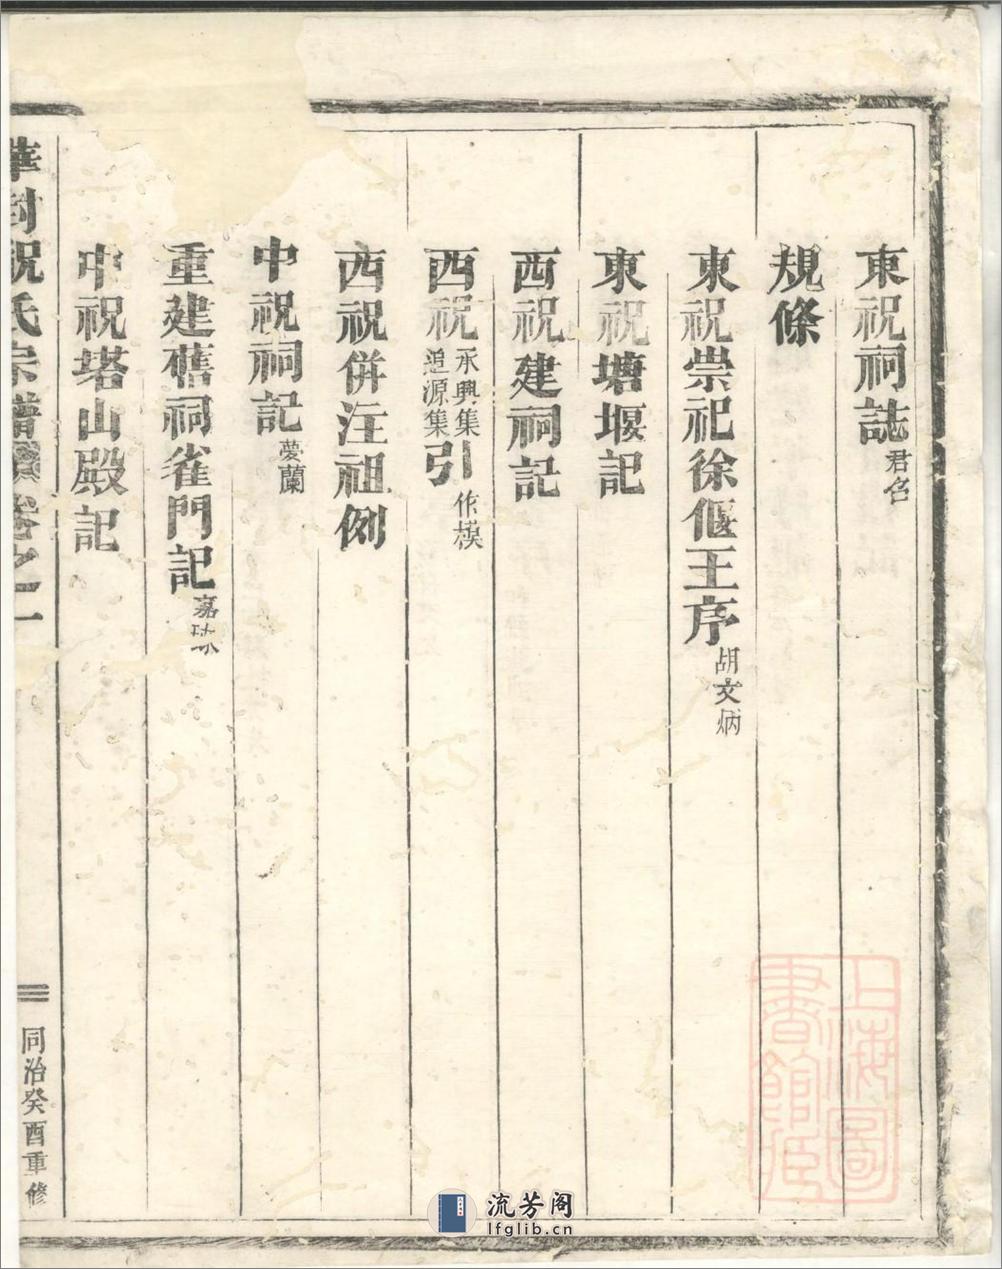 東祝祠誌 君名
規條
東祝崇祀徐偃王序 胡文炳
東祝塘堰記
西祝建祠記
西祝 永興集 追源集 引 作模
西祝併注祖例
中祝祠記 夢蘭
重建舊祠雀門記 嘉球
中祝塔山殿記
華封祝氏宗譜 卷之一
三
同治癸酉重修
上海圖書館藏
流芳阁
lfglib.cn